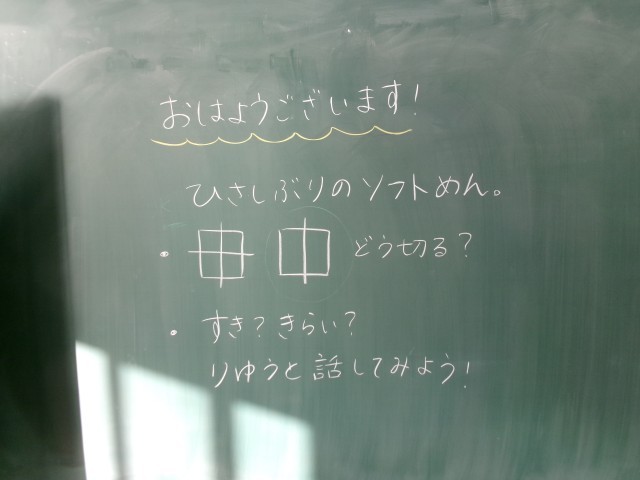 おはようございます!
ひさしぶりのソフトめん。
・ どう切る?
・ すき? きらい?
りゆうと話してみよう!